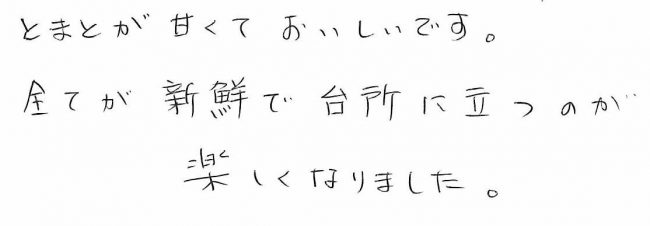 とまとが甘くておいしいです。
全てが新鮮で台所に立つのが
楽しくなりました。